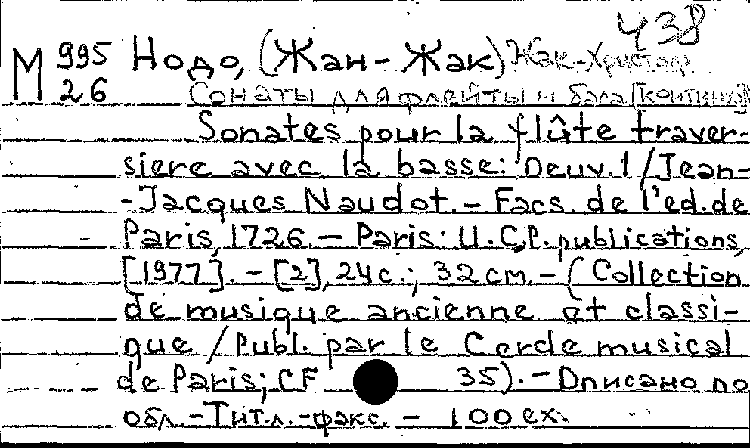 438
М 995 Нодо, (Жан-Жак) Жак-Кристоф
26 Сонаты для флейты и баса [континуо]
Sonates pour la flûte traver-
siere avec la basse: Oeuv.1/Jean-
-Jacques Naudot.-Facs. de l'ed.de
Paris, 1726.-Paris: U.C.P. publications,
[1977].-[2], 24 с.; 32 см.-(Collection
de musique ancienne et classi-
que/Publ. par le Cercle musical
de Paris; CF 35).-Описано по
обл.-Тит.л.-факс.-100 ex.